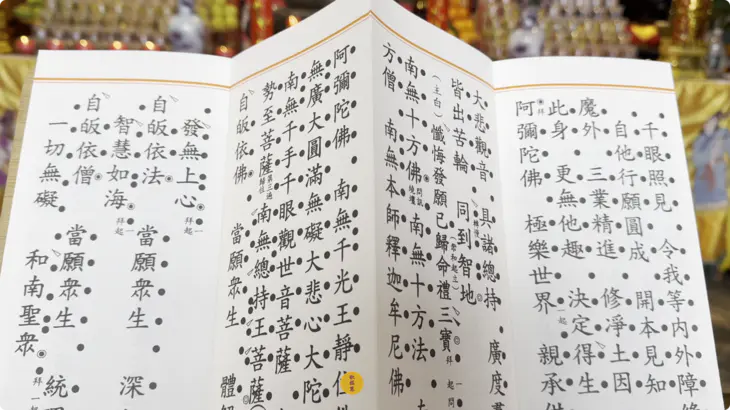 千眼照見 令我等內外障
自他行願圓成 開本見知
魔外 三業精進 修淨土因
此身 更無他趣 決定得生
阿彌陀佛 極樂世界 親承
大悲觀音 具諸總持 廣度
皆出苦輪 同到智地
(主白)懺悔發願已歸命禮三寶 拜起 一問
南無十方佛 問訊繞壇 南無十方法
方僧 南無本師釋迦牟尼佛
阿彌陀佛 南無千光王靜住
無廣大圓滿無礙大悲心大陀
南無千手千眼觀世音菩薩
勢至菩薩 南無總持王菩薩
自皈依佛 當願眾生 體
發無上心 一拜起
自皈依法 當願眾生 深
智慧如海 一拜起
自皈依僧 當願眾生 統
一切無礙 和南聖眾 一拜